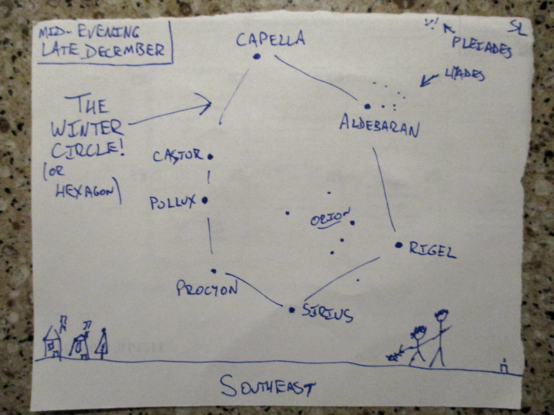 MID-EVENING
LATE DECEMBER
CAPELLA
SL
PLEIADES
HYADES
THE
WINTER
CIRCLE!
(OR
HEXAGON)
ALDEBARAN
CASTOR
POLLUX
ORION
RIGEL
PROCYON
SIRIUS
SOUTHEAST